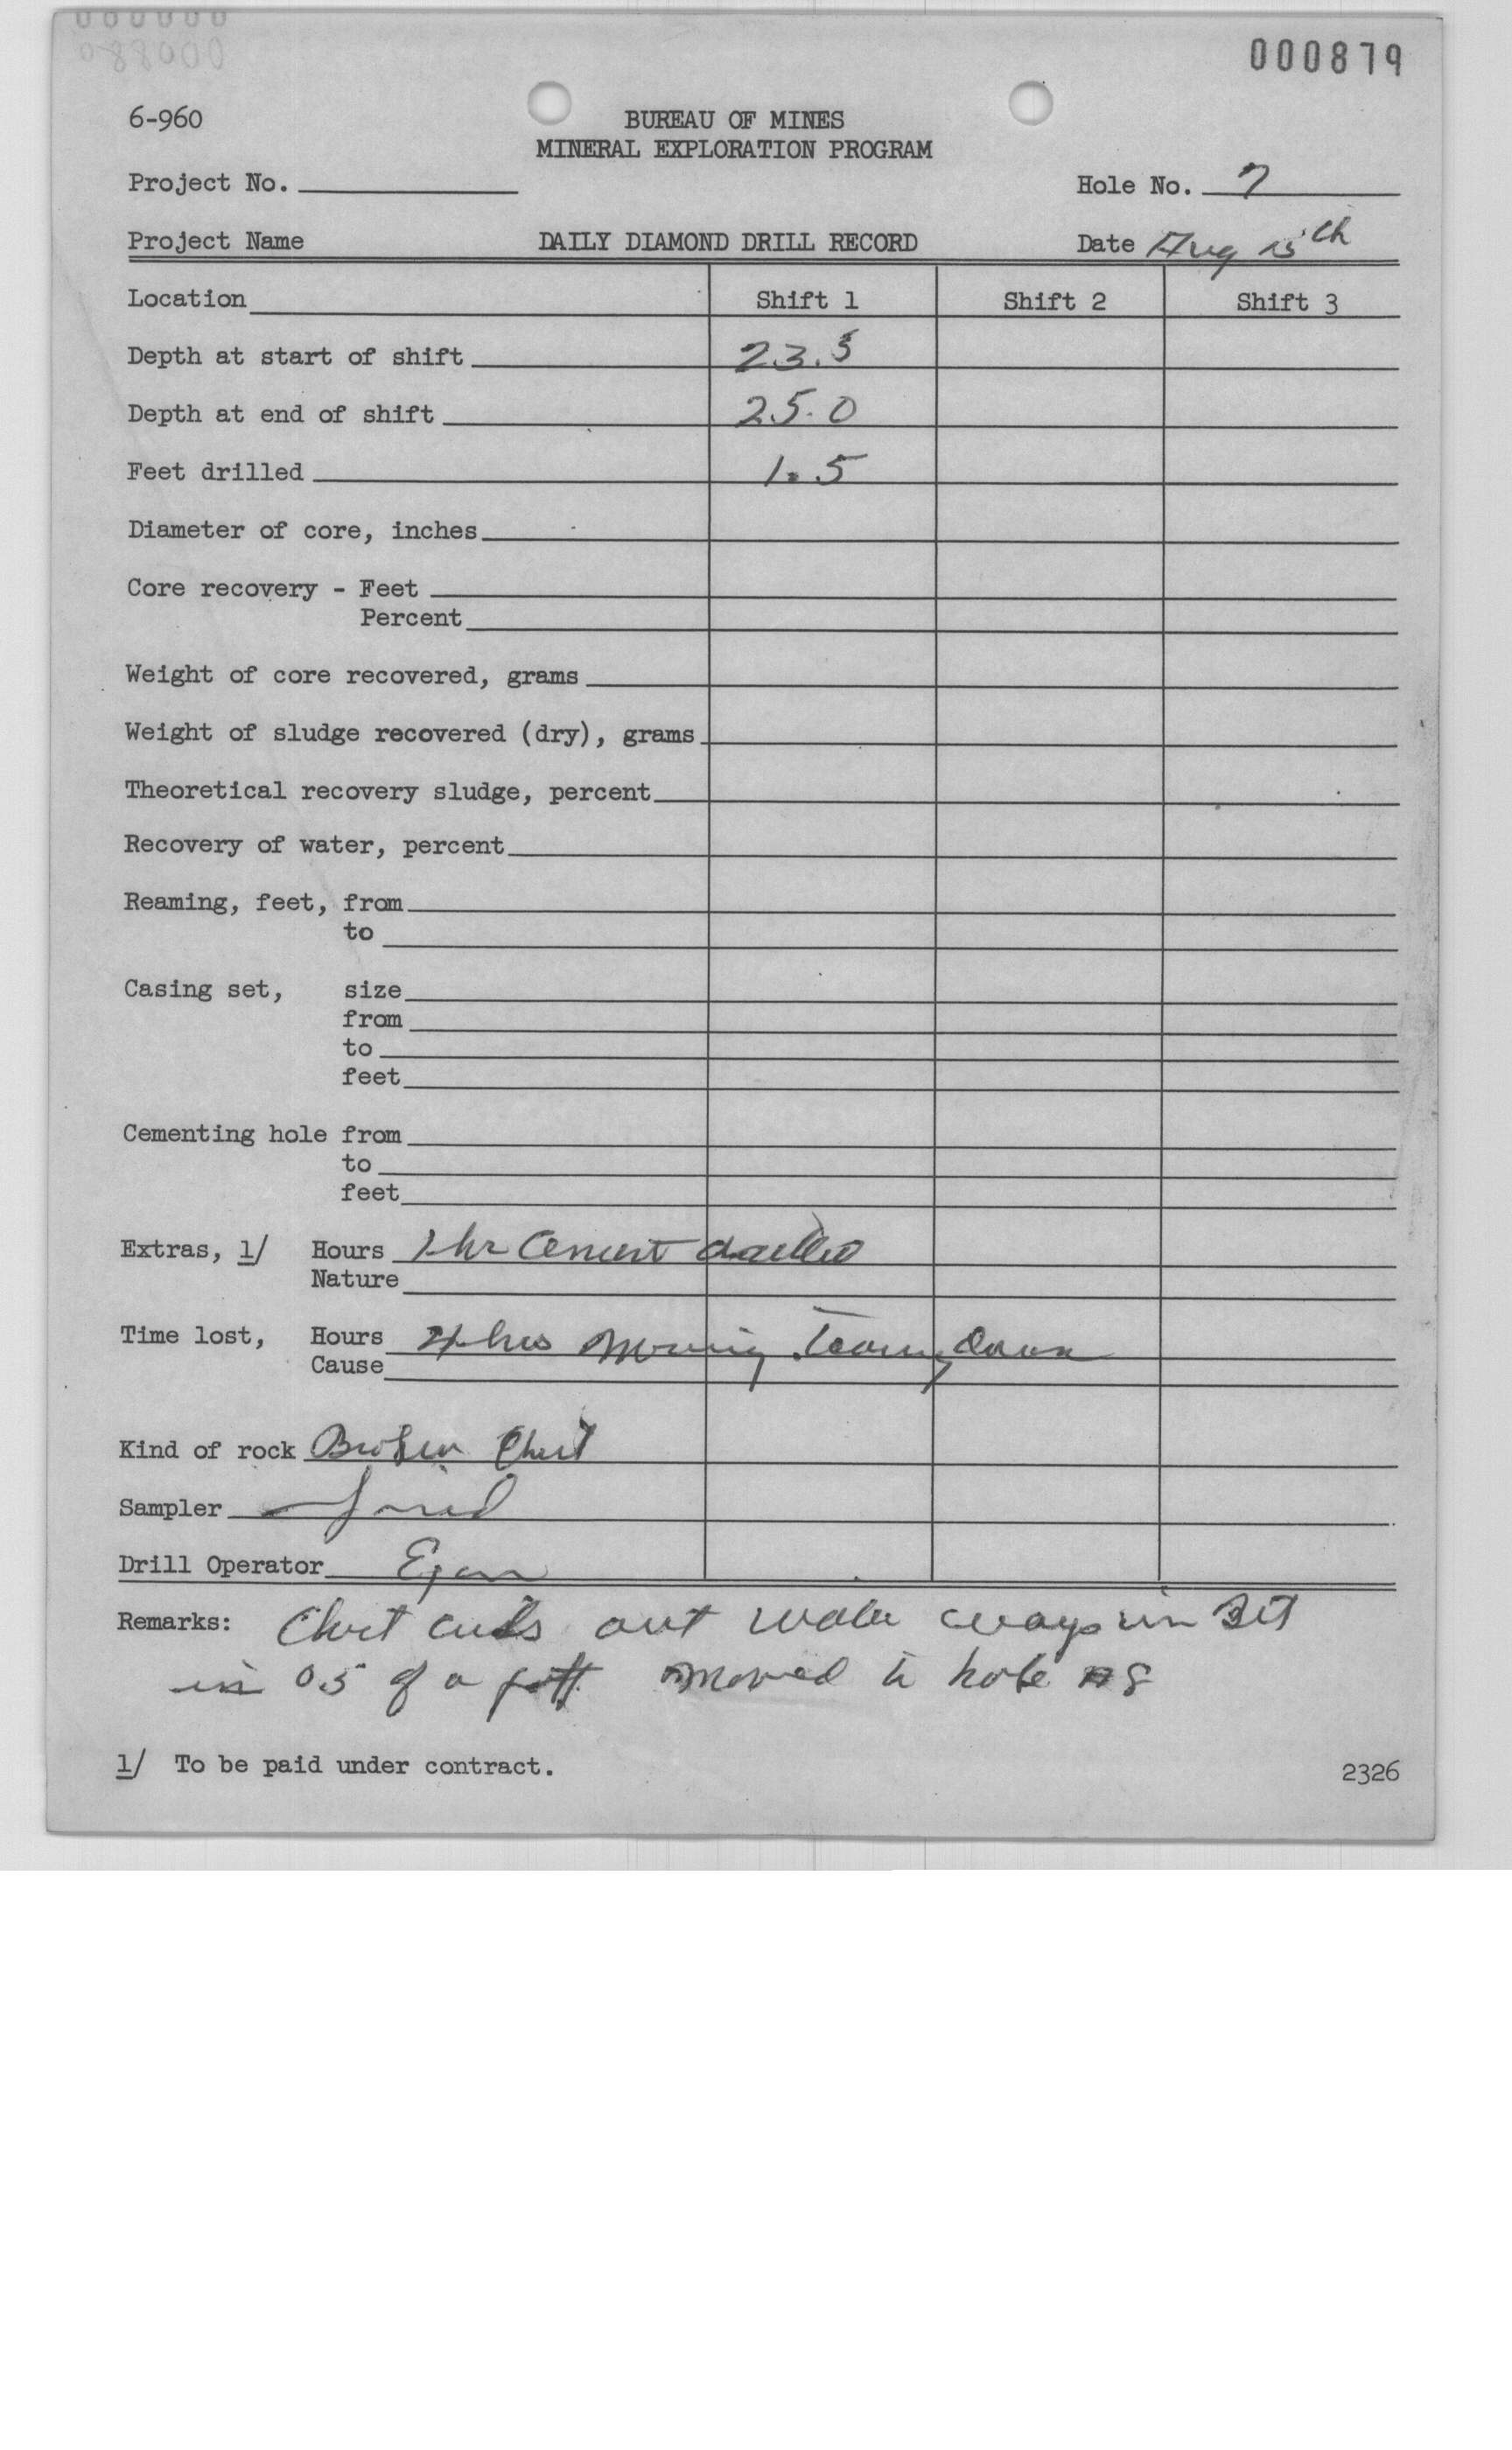 000879
6-960
BUREAU OF MINES
MINERAL EXPLORATION PROGRAM
Project No. Hole No. 7
Project Name DAILY DIAMOND DRILL RECORD Date Aug 15th
Location Shift 1 Shift 2 Shift 3
Depth at start of shift 23.5
Depth at end of shift 25.0
Feet drilled 1.5
Diameter of core, inches
Core recovery - Feet
Percent
Weight of core recovered, grams
Weight of sludge recovered (dry), grams
Theoretical recovery sludge, percent
Recovery of water, percent
Reaming, feet, from
to
Casing set, size
from
to
feet
Cementing hole from
to
feet
Extras, 1/ Hours 1 hr Cement drilled
Nature
Time lost, Hours 4 hrs Moving Tearing Down
Cause
Kind of rock Broken Chert
Sampler
Drill Operator Egan
Remarks: Chert cuts out water ways in Bit
in 0.5 of a foot moved to hole #8
1/ To be paid under contract.
2326